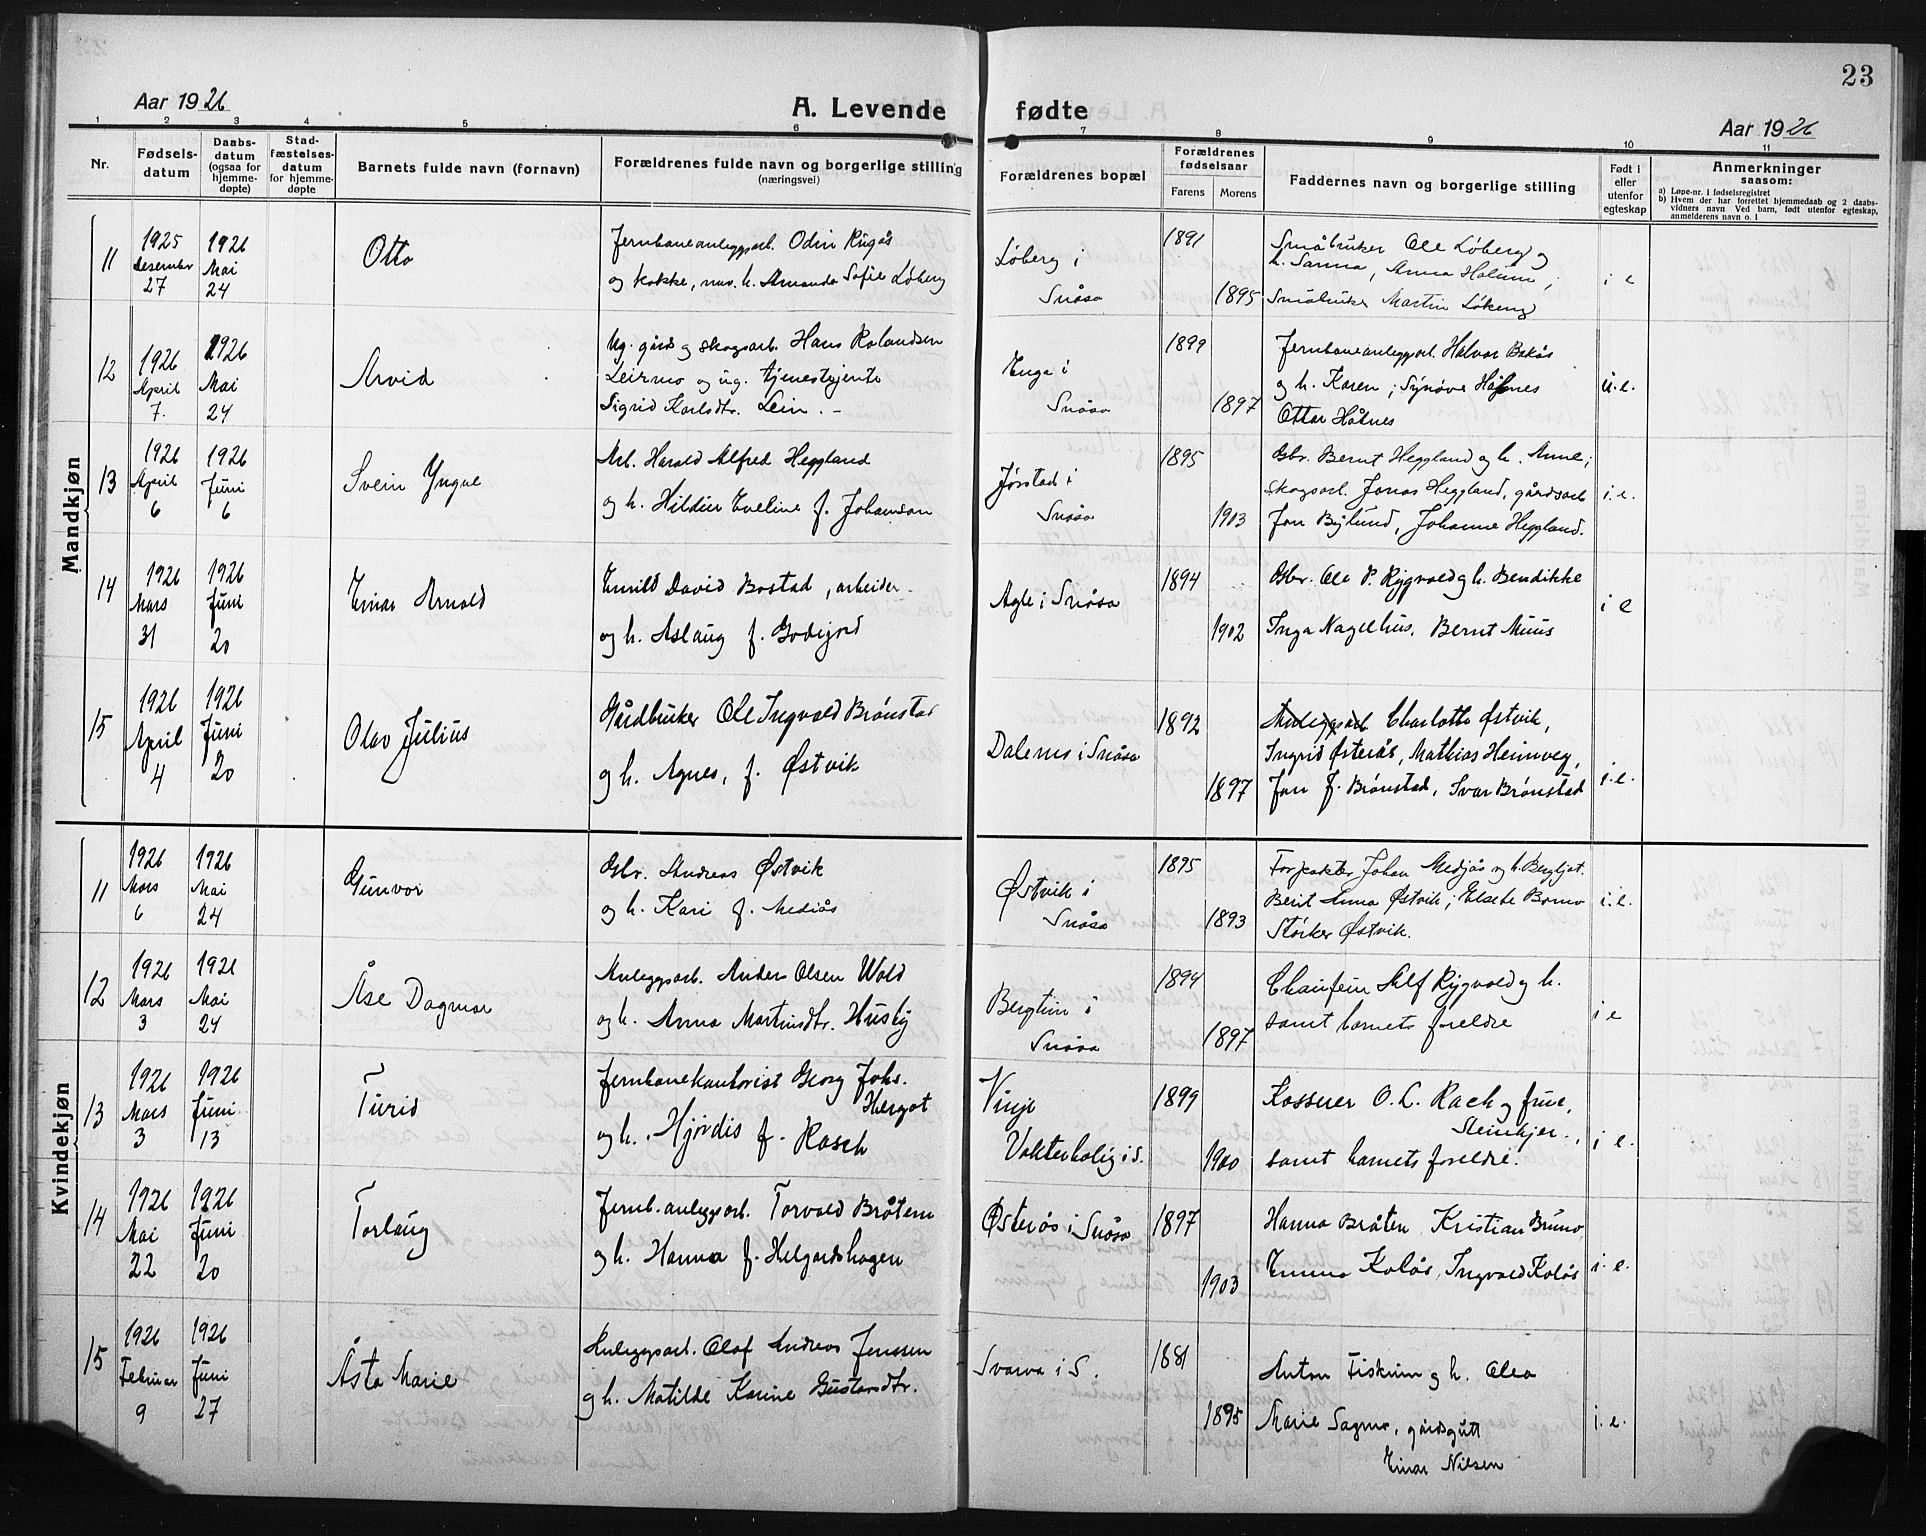 23
Aar 1926
A. Levende fødte
Aar 1926
1 2 3 4 5 6 7 8 9 10 11
Nr.
Fødselsdatum
Daabsdatum (ogsaa for hjemmedøpte)
Stadfæstelsesdatum for hjemmedøpte
Barnets fulde navn (fornavn)
Forældrenes fulde navn og borgerlige stilling
(næringsvei)
Forældrenes bopæl
Forældrenes fødselsaar
Farens Morens
Faddernes navn og borgerlige stilling
Født i eller utenfor egteskap
Anmerkninger
saasom:
a) Løpe-nr. i fødselsregistret
b) Hvem der har forrettet hjemmedaab og 2 daabsvidners navn Ved barn, født utenfor egteskap, anmelderens navn o. l
Mandkjøn
11
1925 Desember 27
1926 Mai 24
Otto
Jernbaneanleggsarb. Odin Rugås
og kokke, Amanda Sofie Løberg
Løberg i
Snåsa
1891
1895
Småbruker Ole Løberg og
h. Sanna, Anna
Småbruker Martin Løkeng
i e
12
1926 April 7.
1926 Mai 24
Arvid
Ug. gårds og skogsarb. Hans Rolandsen
Leirmo og ug. tjenestejente
Sigrid Karlsdtr. Lein. -
Enge i
Snåsa
1899
1897
Jernbaneanleggsarb. Halvor Bakås
og h. Karen; Synøve Håknes
Ottar Håknes
u.e.
13
1926 April 6
1926 Juni 6
Svein Yngve
Arb. Harald Alfred Heggland
og h. Hildur Eveline f. Johanson
Jørstad i
Snåsa
1895
1903
Gbr. Bernt Heggland og h. Anne;
skogsarb. Jonas Heggland, gårdsarb
Jon Byland, Johanne Heggland.
i.e.
14
1926 Mars 31
1926 Juni 20
Einar Arnold
Emild David Bostad, arbeider
og h. Aslaug f. Godejord
Agle i Snåsa
1894
1902
Gbr. Ole P. Rygvold og h. Bendikke
Inga Nagelhus. Bernt Muus
i e
15
1926 April 4
1926 Juni 20
Olav Julius
Gårdbruker Ole Ingvald Brønstad
og h. Agnes, f. Østvik
Dalems i Snåsa
1892
1897
Anleggsarb Charlotte Østvik,
Ingrid Østerås, Mathias Heimveg,
Jon J. Brønstad, Ivar Brønstad
i.e.
Kvindekjøn
11
1926 Mars 6
1926 Mai 24
Gunvor
Gbr. Andreas Østvik
og h. Kari f. Medjås
Østvik i
Snåsa
1895
1893
Forpakter Johan Medjås og h. Bergljot.
Berit Anna Østvik; Elsebe Bomo
Størker Østvik.
i.e.
12
1926 Mars 3
1926 Mai 24
Åse Dagmar
Anleggsarb. Anders Olsen Wold
og h. Anna Martinsdtr. Husby
Bergtun i
Snåsa
1894
1897
Chaufeur Alf Rygvold og h.
samt barnets foreldre
i e
13
1926 Mars 3
1926 Juni 13
Turid
Jernbanekontorist Georg Johs.
Hergot
og h. Hjørdis f. Rasch
Vinje
Vokterbolig i S.
1899
1900
Kasserer O. L. Rasch og frue,
Steinkjer.,
samt barnets foreldre.
i e.
14
1926 Mai 22
1926 Juni 20
Torlaug
Jernb.anleggsarb. Torvald Bråten
og h. Hanna f. Helgardshagen
Østerås i Snåsa
1897
1903
Hanna Bråten, Kristian Bruno,
Emma Kolås, Ingvald Kolås
i. e.
15
1926 Februar 9
1926 Juni 27
Åsta Marie
Anleggsarb. Olaf Andreas Jenssen
og h. Matilde Karine Gustavsdtr.
Svarva i S.
1881
1895
Anton Fiskum og h. Olea
Marie Sagmo, gårdsgutt
Einar Nilsen
i. e.